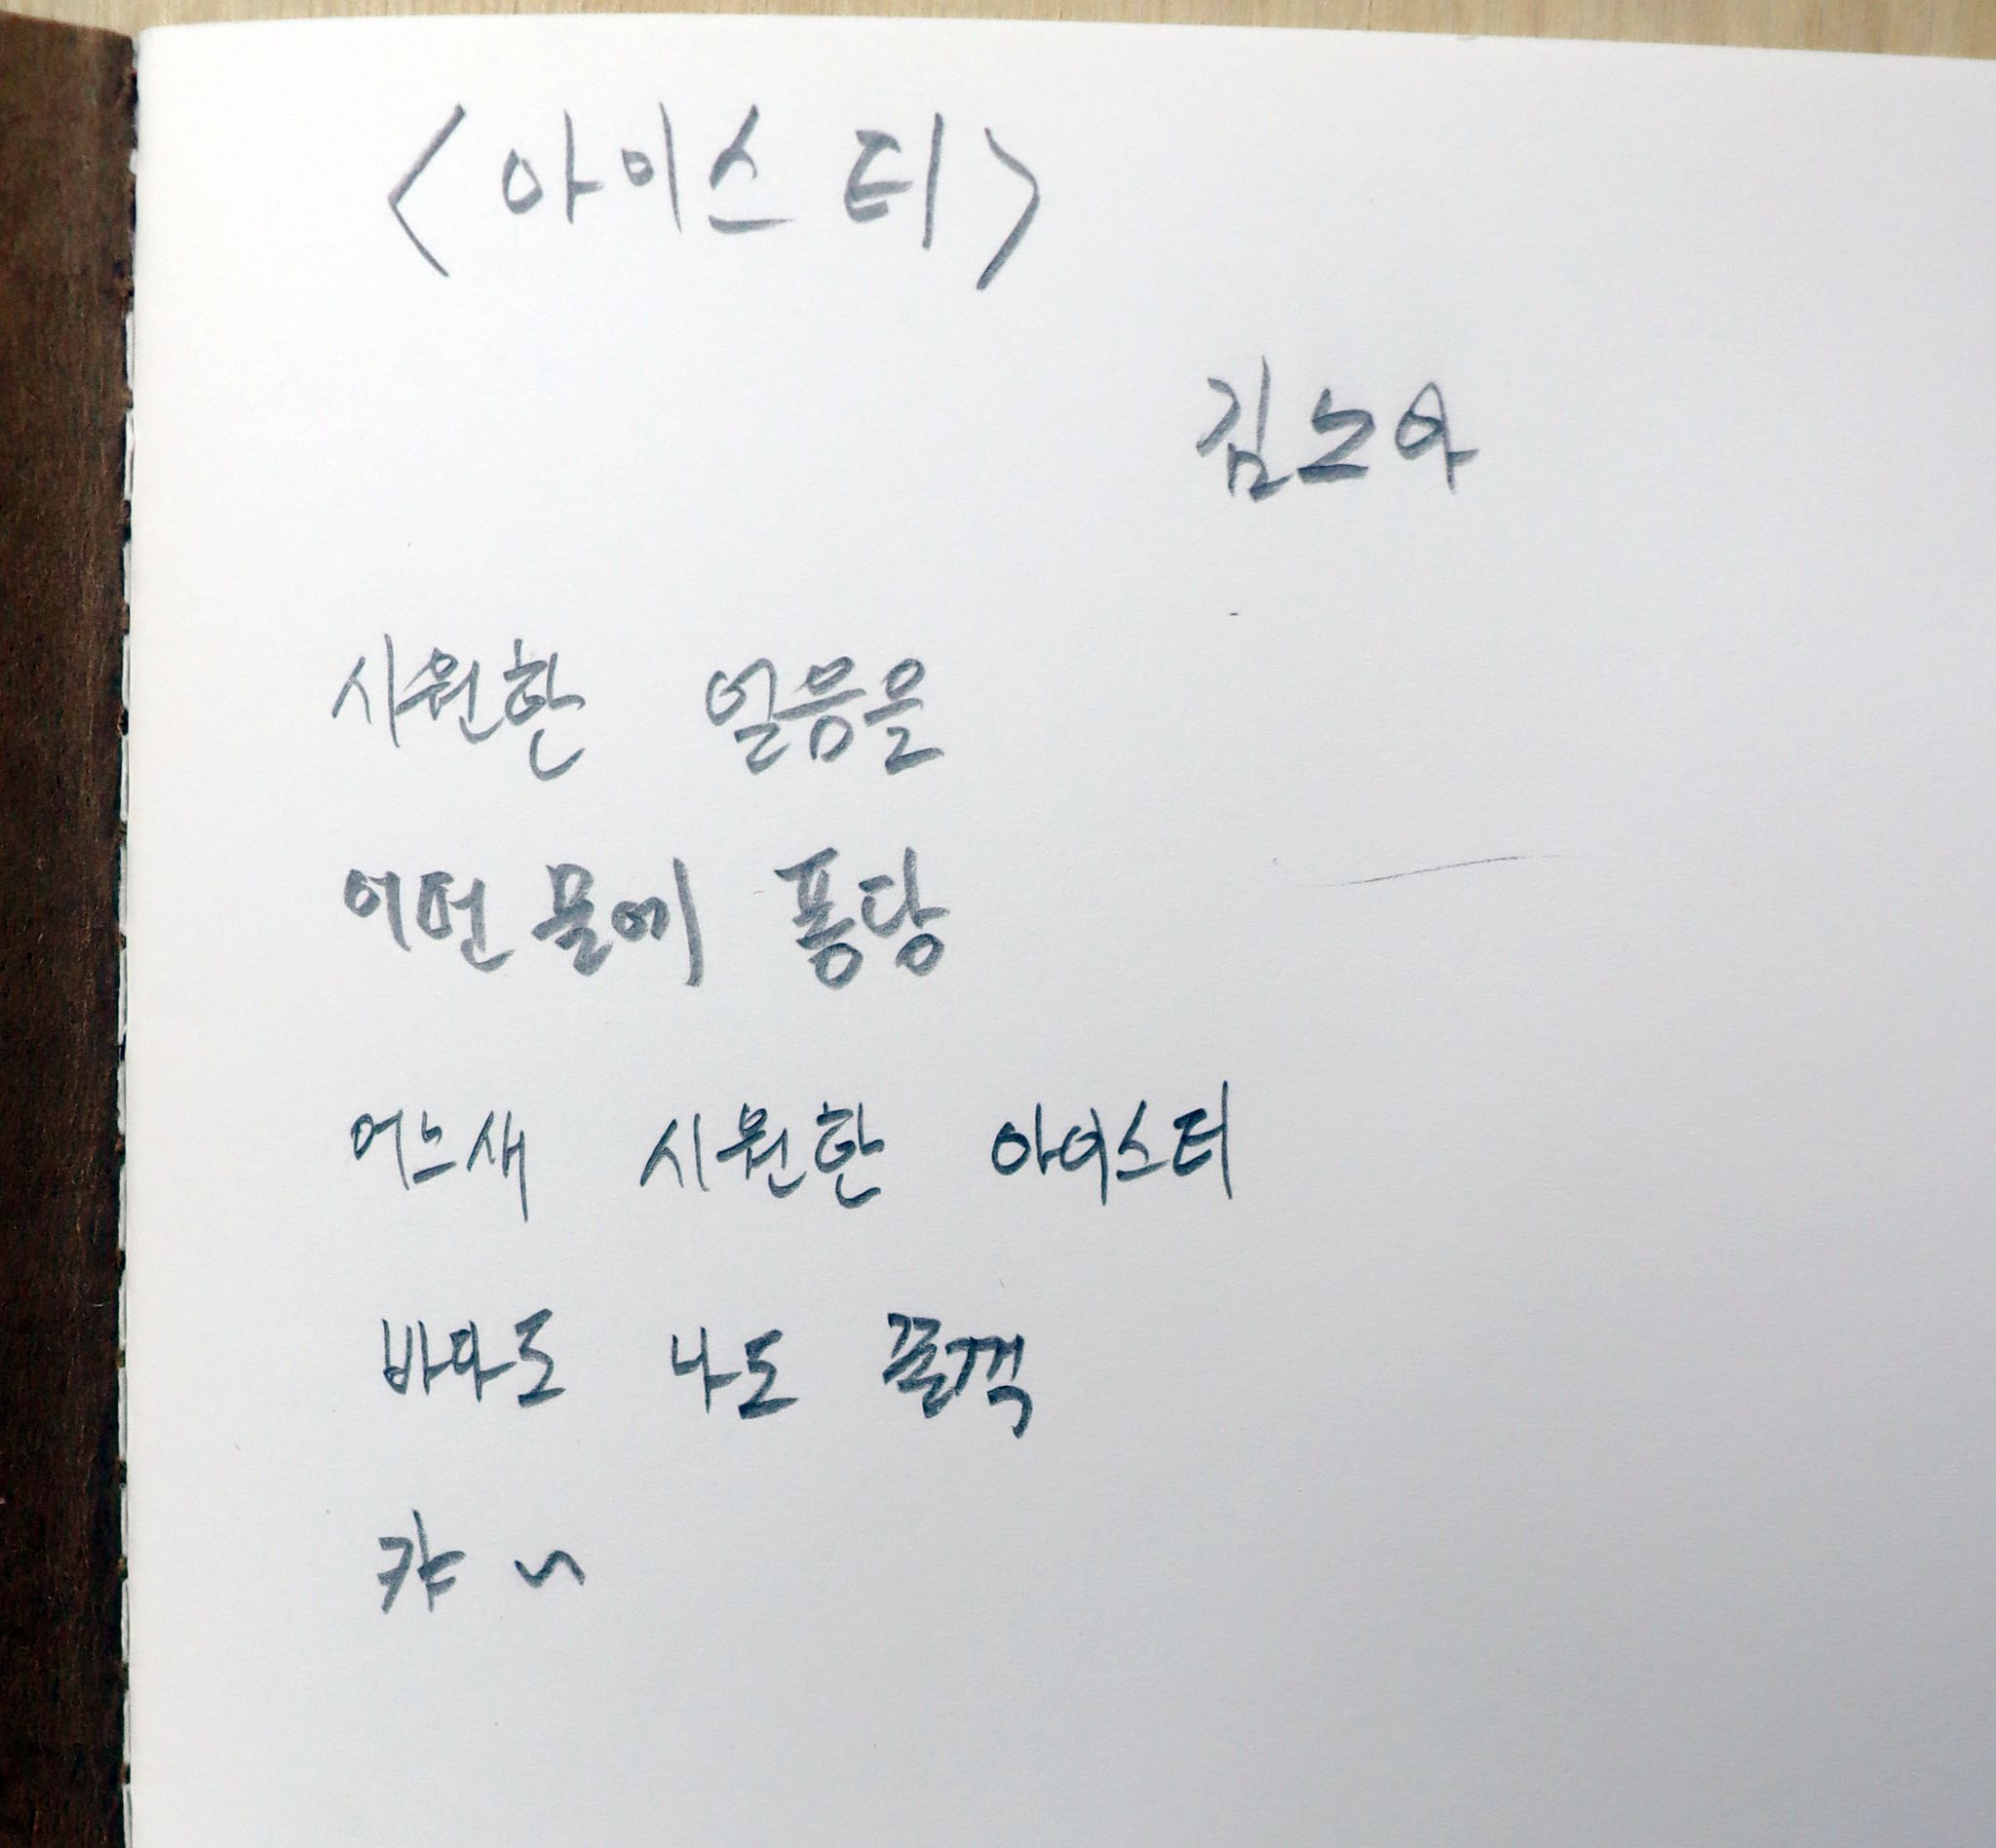 <아이스티>
김노아
시원한 얼음을
어떤 물에 퐁당
어느새 시원한 아이스티
바다도 나도 꼴깍
캬~